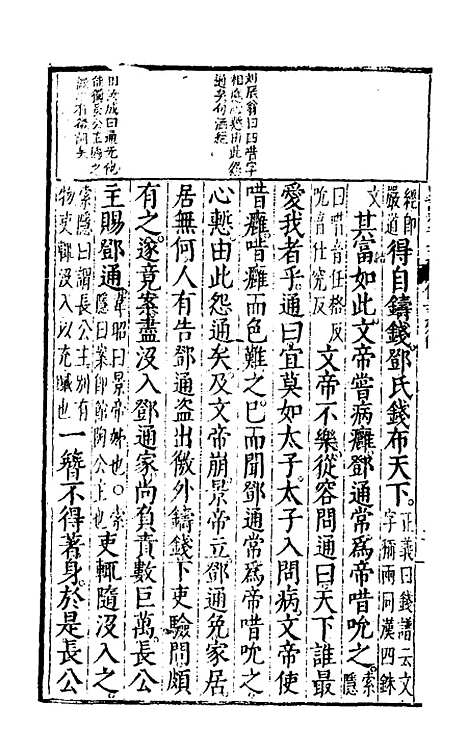 劉辰翁曰四唶字
相應心慙由此怨
通矣何
曰通
長公主
經即
嚴道得自鑄錢鄧氏錢布天下正義曰錢譜云文
字稱兩同漢四銖
文其富如此文帝嘗病癰鄧通常爲帝唶吮之索隱
曰唶音任格反
吮音仕兗反文帝不樂從容問通曰天下誰最
愛我者乎通曰宜莫如太子太子入問病文帝使
唶癰唶癰而色難之已而聞鄧通常爲帝唶吮之
心慙由此怨通矣及文帝崩景帝立鄧通免家居
居無何人有告鄧通盜出徼外鑄錢下吏驗問頗
有之遂竟案盡沒入鄧通家尚負責數巨萬長公
主賜鄧通韋昭曰景帝姊也○索
隱曰案即館陶公主也吏輒隨沒入之
索隱曰謂長公主別有
物吏輒沒入以充贓也一簪不得著身於是長公